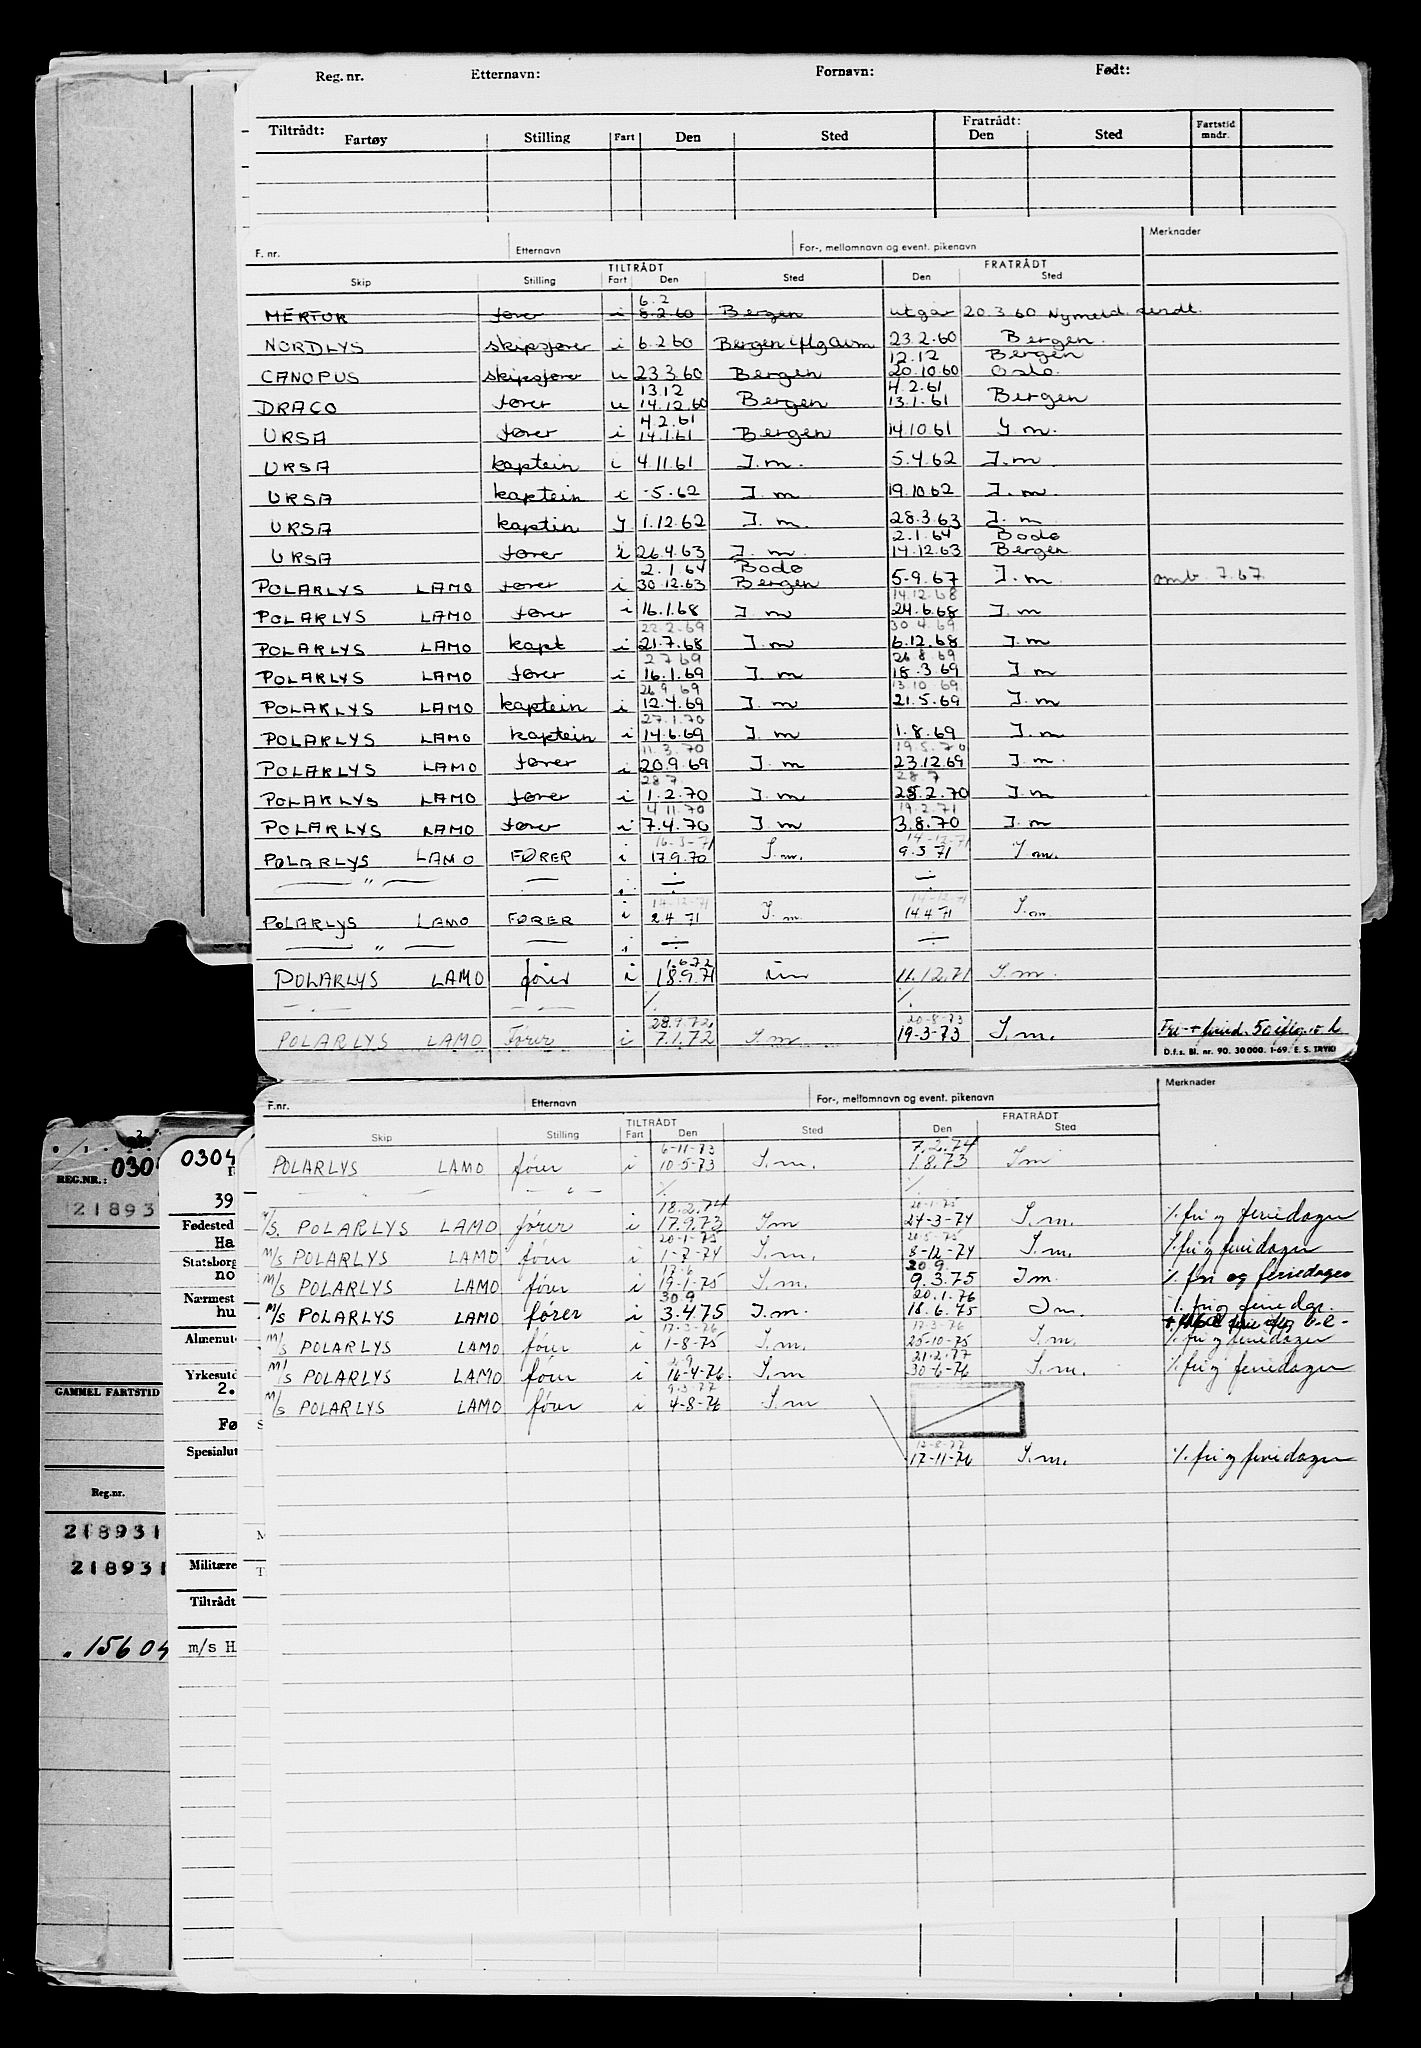 Reg. nr. Etternavn: Fornavn: Født:
Tiltrådt: Fratrådt: Fartstid
Fartøy Stilling Fart Den Sted Den Sted mndr.
F. nr. Etternavn For-, mellomnavn og event. pikenavn Merknader
TILTRÅDT FRATRÅDT
Skip Stilling Fart Den Sted Den Sted
6.2
MERKUR fører i 8.2.60 Bergen utgår 20 3 60 Nymeld. sendt.
NORDLYS skipsfører i 6.2 60 Bergen iflg avm 23.2.60 Bergen.
12.12 Bergen
CANOPUS skipsfører u 23 3.60 Bergen 20.10.60 Oslo.
13.12 4.2.61
DRACO fører u 14.12.60 Bergen 13.1.61 Bergen
4.2.61
URSA fører i 14.1.61 Bergen 14.10.61 I m.
URSA kaptein i 4.11.61 I.m. 5.4.62 I.m
URSA kaptein i -5.62 I.m 19.10.62 I.m
URSA kaptin i 1.12.62 I.m. 28.3.63 I.m
2.1.64 Bodø
URSA fører i 26.4.63 I.m. 14.12.63 Bergen
2.1.64 Bodø
POLARLYS LAMO fører i 30.12.63 Bergen 5-9.67 I.m. omb. 7.67.
14.12.68
POLARLYS LAMO fører i 16.1.68 I m 24.6.68 I.m
22.2.69 30 4.69
POLARLYS LAMO kapt i 21.7.68 I m 6.12.68 I.m
2 7 69 26 8 69
POLARLYS LAMO fører i 16.1.69 I m 18.3.69 I m
26 9 69 13 10 69
POLARLYS LAMO kaptein i 12.4.69 I.m 21.5.69 I.m
27.1.70
POLARLYS LAMO kaptein i 14.6.69 I m 1.8.69 I.m
11.3.70 19.5.70
POLARLYS LAMO fører i 20.9.69 I.m 23.12.69 I.m.
28 7. 28 7
POLARLYS LAMO fører i 1.2.70 I.m 25.2.70 I.m
4 11 70 19.2.71
POLARLYS LAMO fører i 7.4.70 I m 3.8.70 I.m
16-3-71 14-12.71
POLARLYS LAMO FØRER i 17.9.70 I.m. 9.3 71 I m.
— " — — i ÷ ÷
14-12-71 14-12-71
POLARLYS LAMO FØRER i 2.4.71 I.m. 14.4.71 I.m
— " — — i ÷ ÷
1.6.72
POLARLYS LAMO fører i 18.9.71 im 11.12.71 I.m.
28.9.72. 20-8-73
POLARLYS LAMO Fører i 7.1.72 I m 19-3-73 I.m.
D.f.s. Bl. nr. 90. 30 000. 1-69. E. S. TRYKK
F.nr. Etternavn For-, mellomnavn og event. pikenavn Merknader
TILTRÅDT FRATRÅDT
Skip Stilling Fart Den Sted Den Sted
6-11-73 7.2.74
POLARLYS LAMO fører i 10-5-73 I.m. 1 8.73 I m
— — " — ٪ ٪
18.2.74 20-1-75
M/S. POLARLYS LAMO fører i 17.9.73 I m 24-3-74 I.m. ٪ fri og feriedager
20-1-75 20-5-75
M/S POLARLYS LAMO fører i 1-7-74 I.m. 8-12-74 I.m. ٪ fri og feriedager
17.6 20 9.
M/S POLARLYS LAMO fører i 19-1-75 I.m. 9.3.75 I m. ٪ fri og feriedager
30 9 20.1.76
M/S POLARLYS LAMO fører i 3.4.75 I.m. 18.6.75 I m. ٪ fri og ferie dgr.
17-3-76 17-3-76
M/S POLARLYS LAMO fører i 1-8-75 I.m. 25-10-75 I.m. ٪ fri og feriedager
2.9 21.2.77
M/S POLARLYS LAMO fører i 16-4-76. I.m 30-6-76 I.m. ٪ fri og feriedager
9-3-77
M/S POLARLYS LAMO fører i 4-8-76 I.m
12-8-77
17-11-76 I.m. ٪ fri og feriedager
0304
REG.NR.:
218931
39
Fødested
Ha
Statsborg
no
Nærmest
hu
Almenut
Yrkesutd
2.
GAMMEL FARTSTID
Fø
Spesialut
Reg.nr.
218931
218931
Militære
Tiltrådt
15604
m/s H